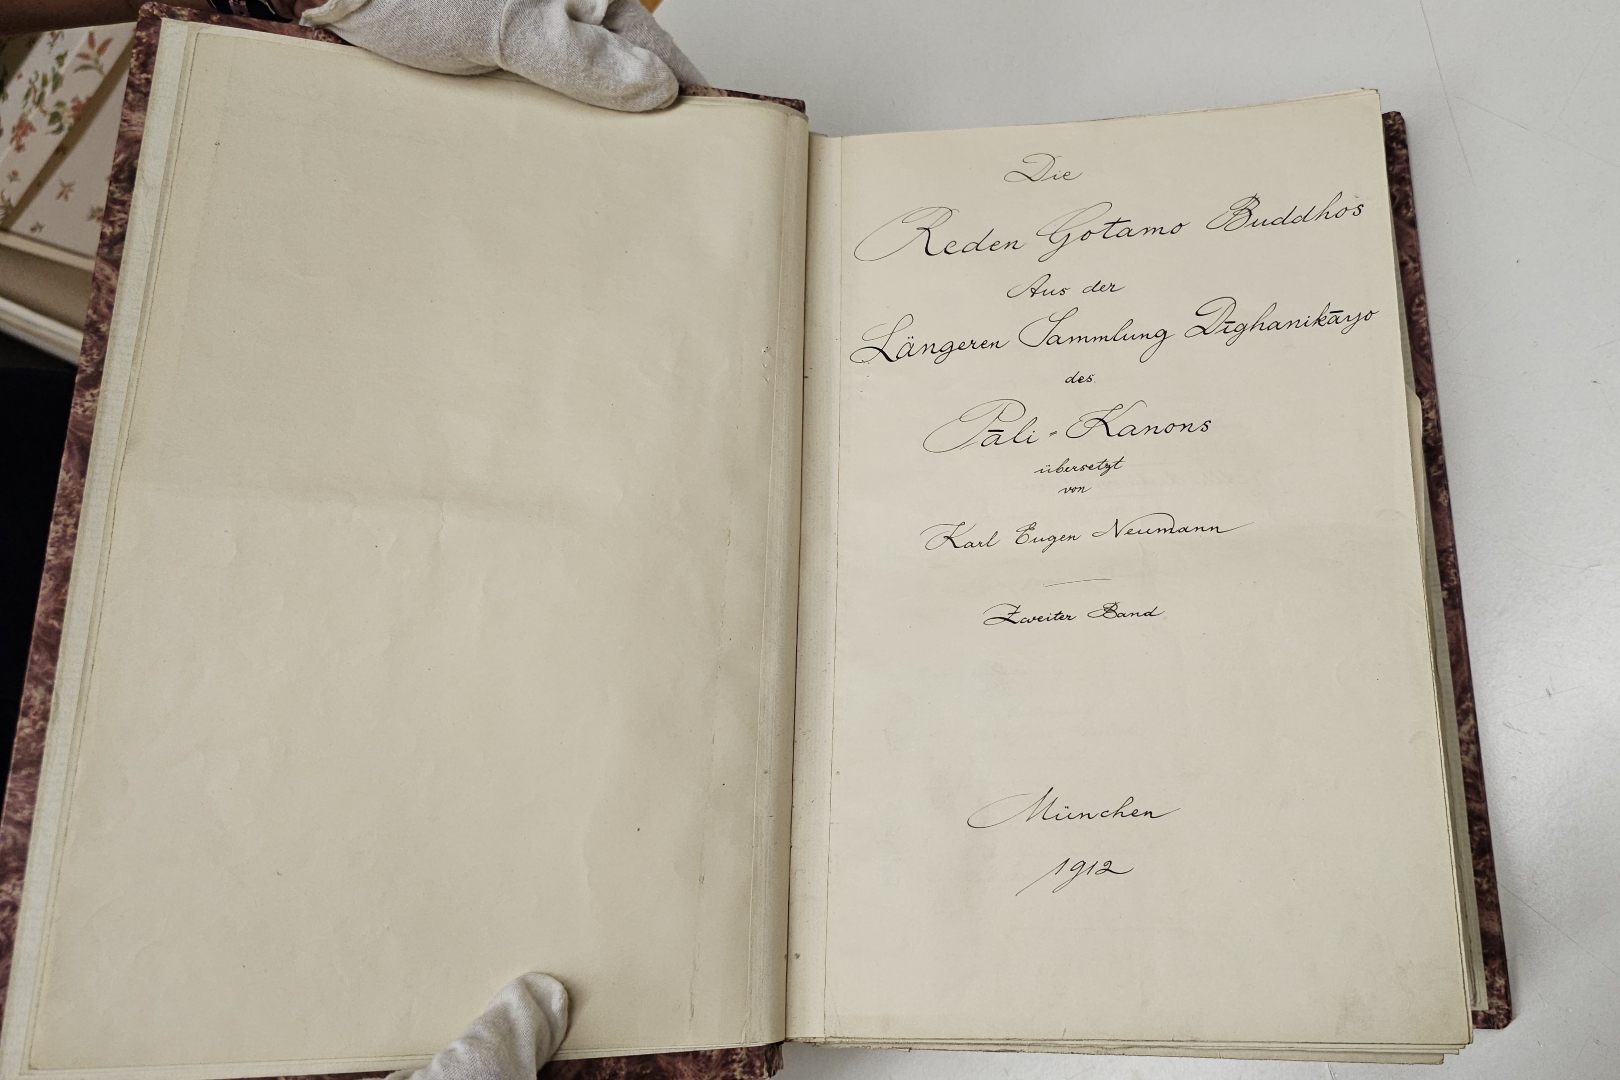 Die
Reden Gotamo Buddhos
Aus der
Längeren Sammlung Dīghanikāyo
des
Pāli-Kanons
übersetzt
von
Karl Eugen Neumann
Zweiter Band
München
1912